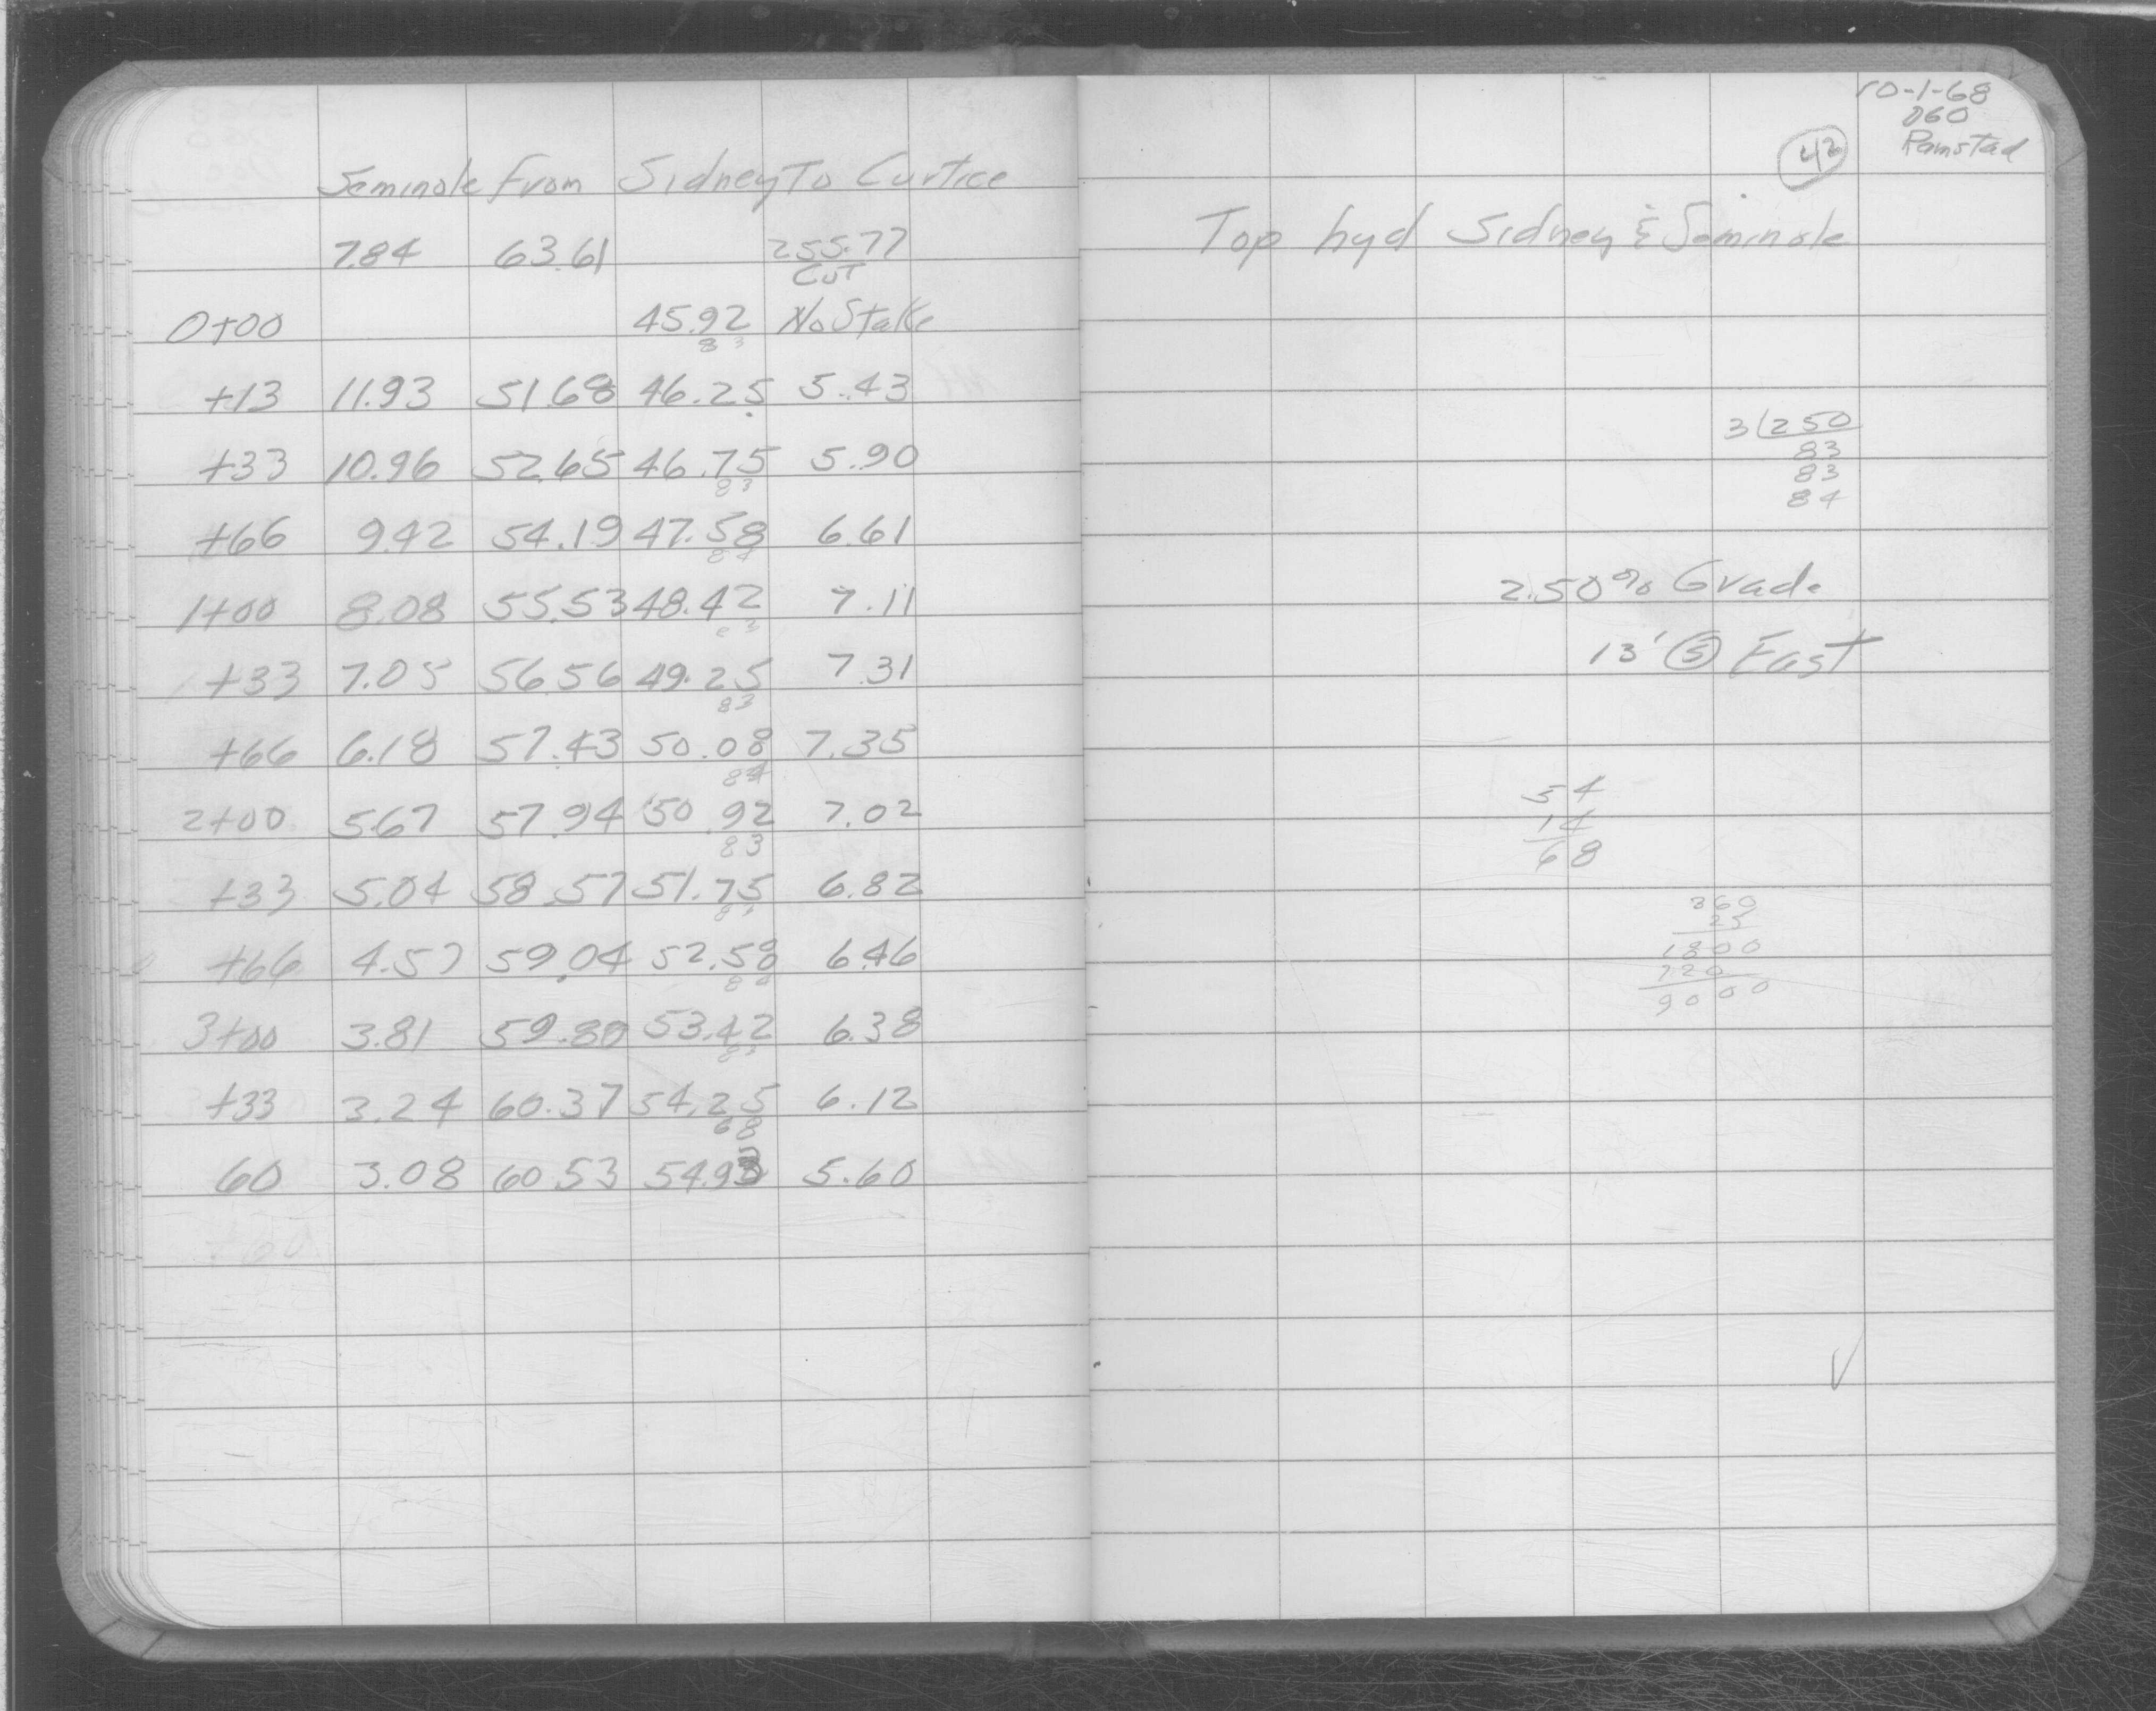 Seminole From Sidney To Curtice
7.84 63.61 255.77
Cut
0+00 45.92 No Stake
83
+13 11.93 51.68 46.25 5.43
+33 10.96 52.65 46.75 5.90
83
+66 9.42 54.19 47.58 6.61
84
1+00 8.08 55.53 48.42 7.11
83
+33 7.05 56.56 49.25 7.31
83
+66 6.18 57.43 50.08 7.35
84
2+00 5.67 57.94 50.92 7.02
83
+33 5.04 58.57 51.75 6.82
83
+66 4.57 59.04 52.58 6.46
84
3+00 3.81 59.80 53.42 6.38
83
+33 3.24 60.37 54.25 6.12
68
60 3.08 60.53 54.93 5.60
+60
10-1-68
060
Ramstad
42
Top hyd Sidney & Seminole
3 250
83
83
84
2.50% Grade
13' S East
54
14
68
360
25
1800
720
9000